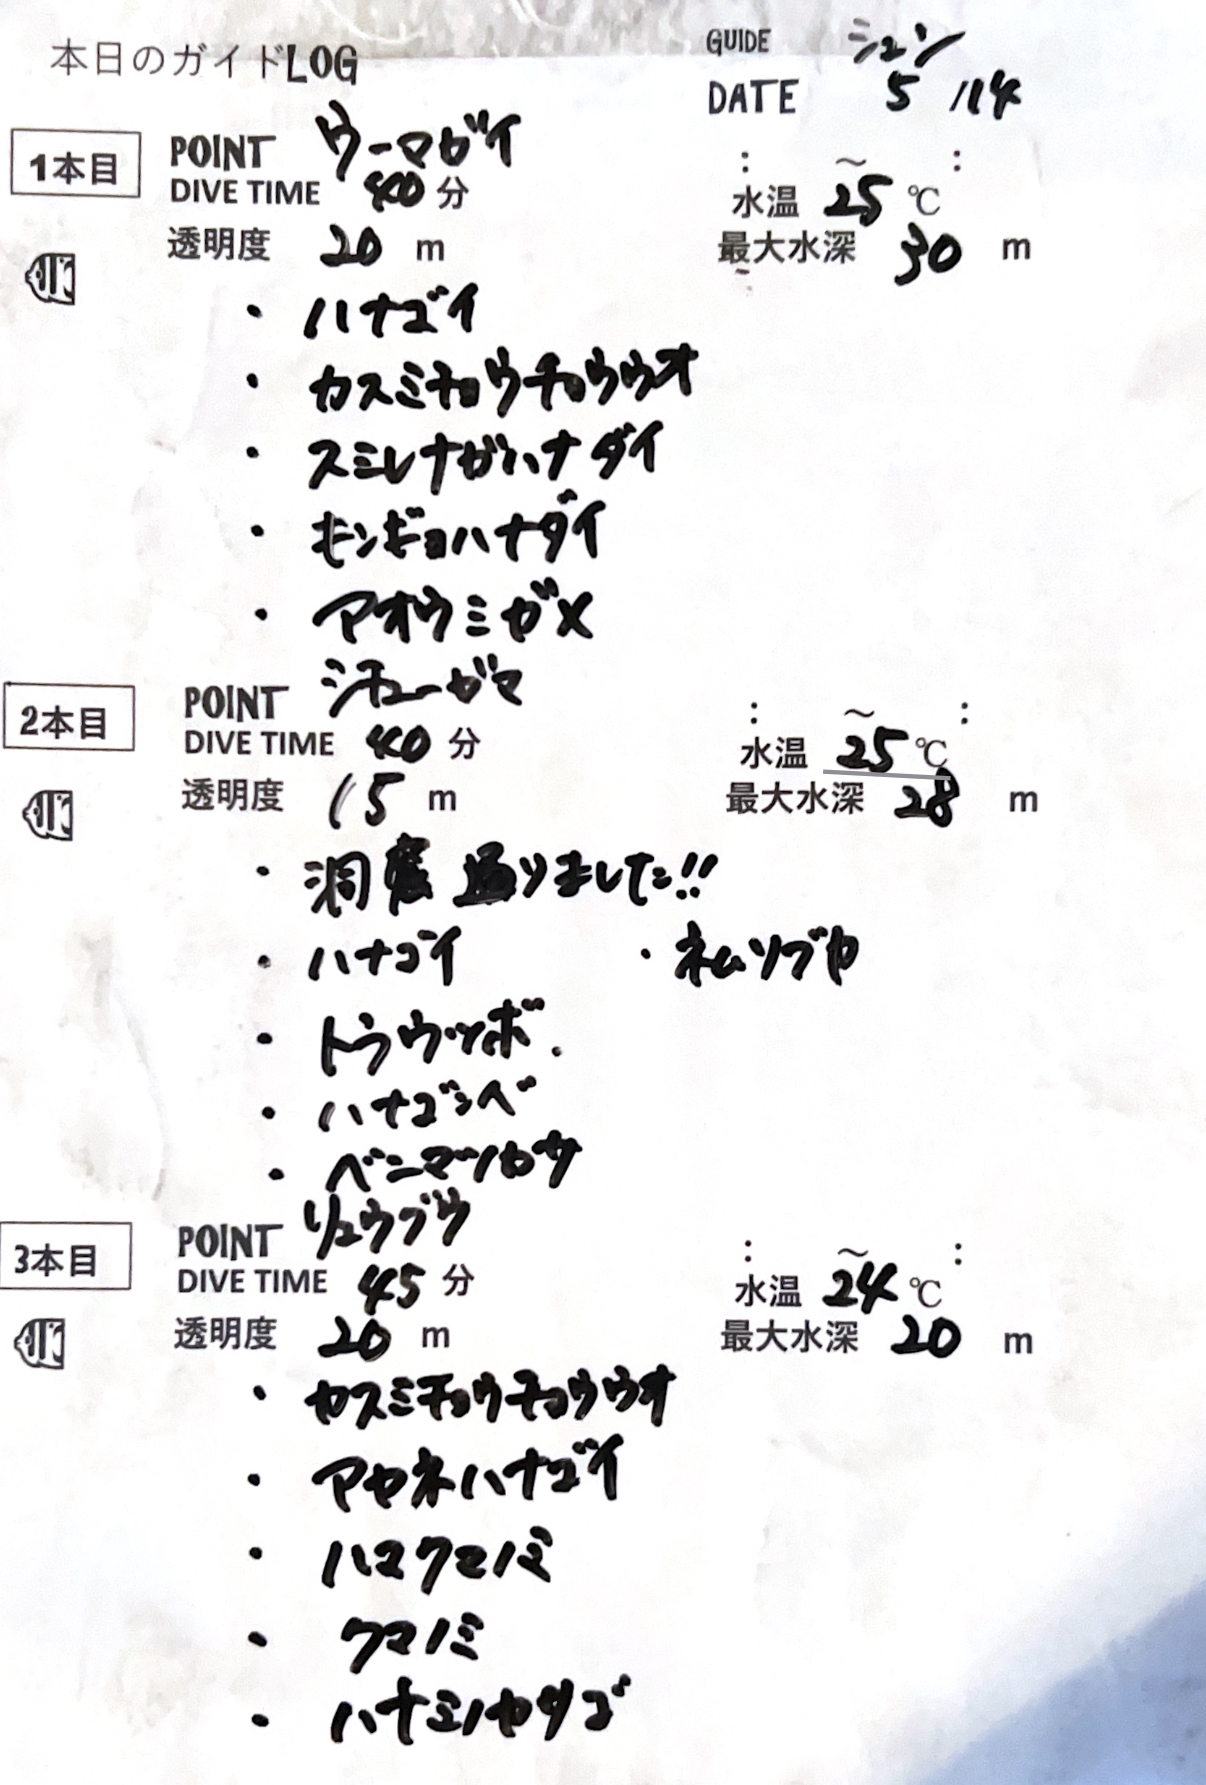 本日のガイドLOG
GUIDE シュン
DATE 5/14
1本目
POINT ウーマガイ
DIVE TIME 40分
: ～ :
水温 25℃
透明度 20 m
最大水深 30 m
・ハナゴイ
・カスミチョウチョウウオ
・スミレナガハナダイ
・キンギョハナダイ
・アオウミガメ
2本目
POINT シチューガマ
DIVE TIME 40分
: ～ :
水温 25℃
透明度 15 m
最大水深 28 m
・洞窟 通りました!!
・ハナゴイ ・ネムリブカ
・トラウツボ.
・ハナゴンベ
・ベンマツカサ
3本目
POINT リュウグウ
DIVE TIME 45分
: ～ :
水温 24℃
透明度 20 m
最大水深 20 m
・カスミチョウチョウウオ
・アカネハナゴイ
・ハマクマノミ
・クマノミ
・ハナミノカサゴ